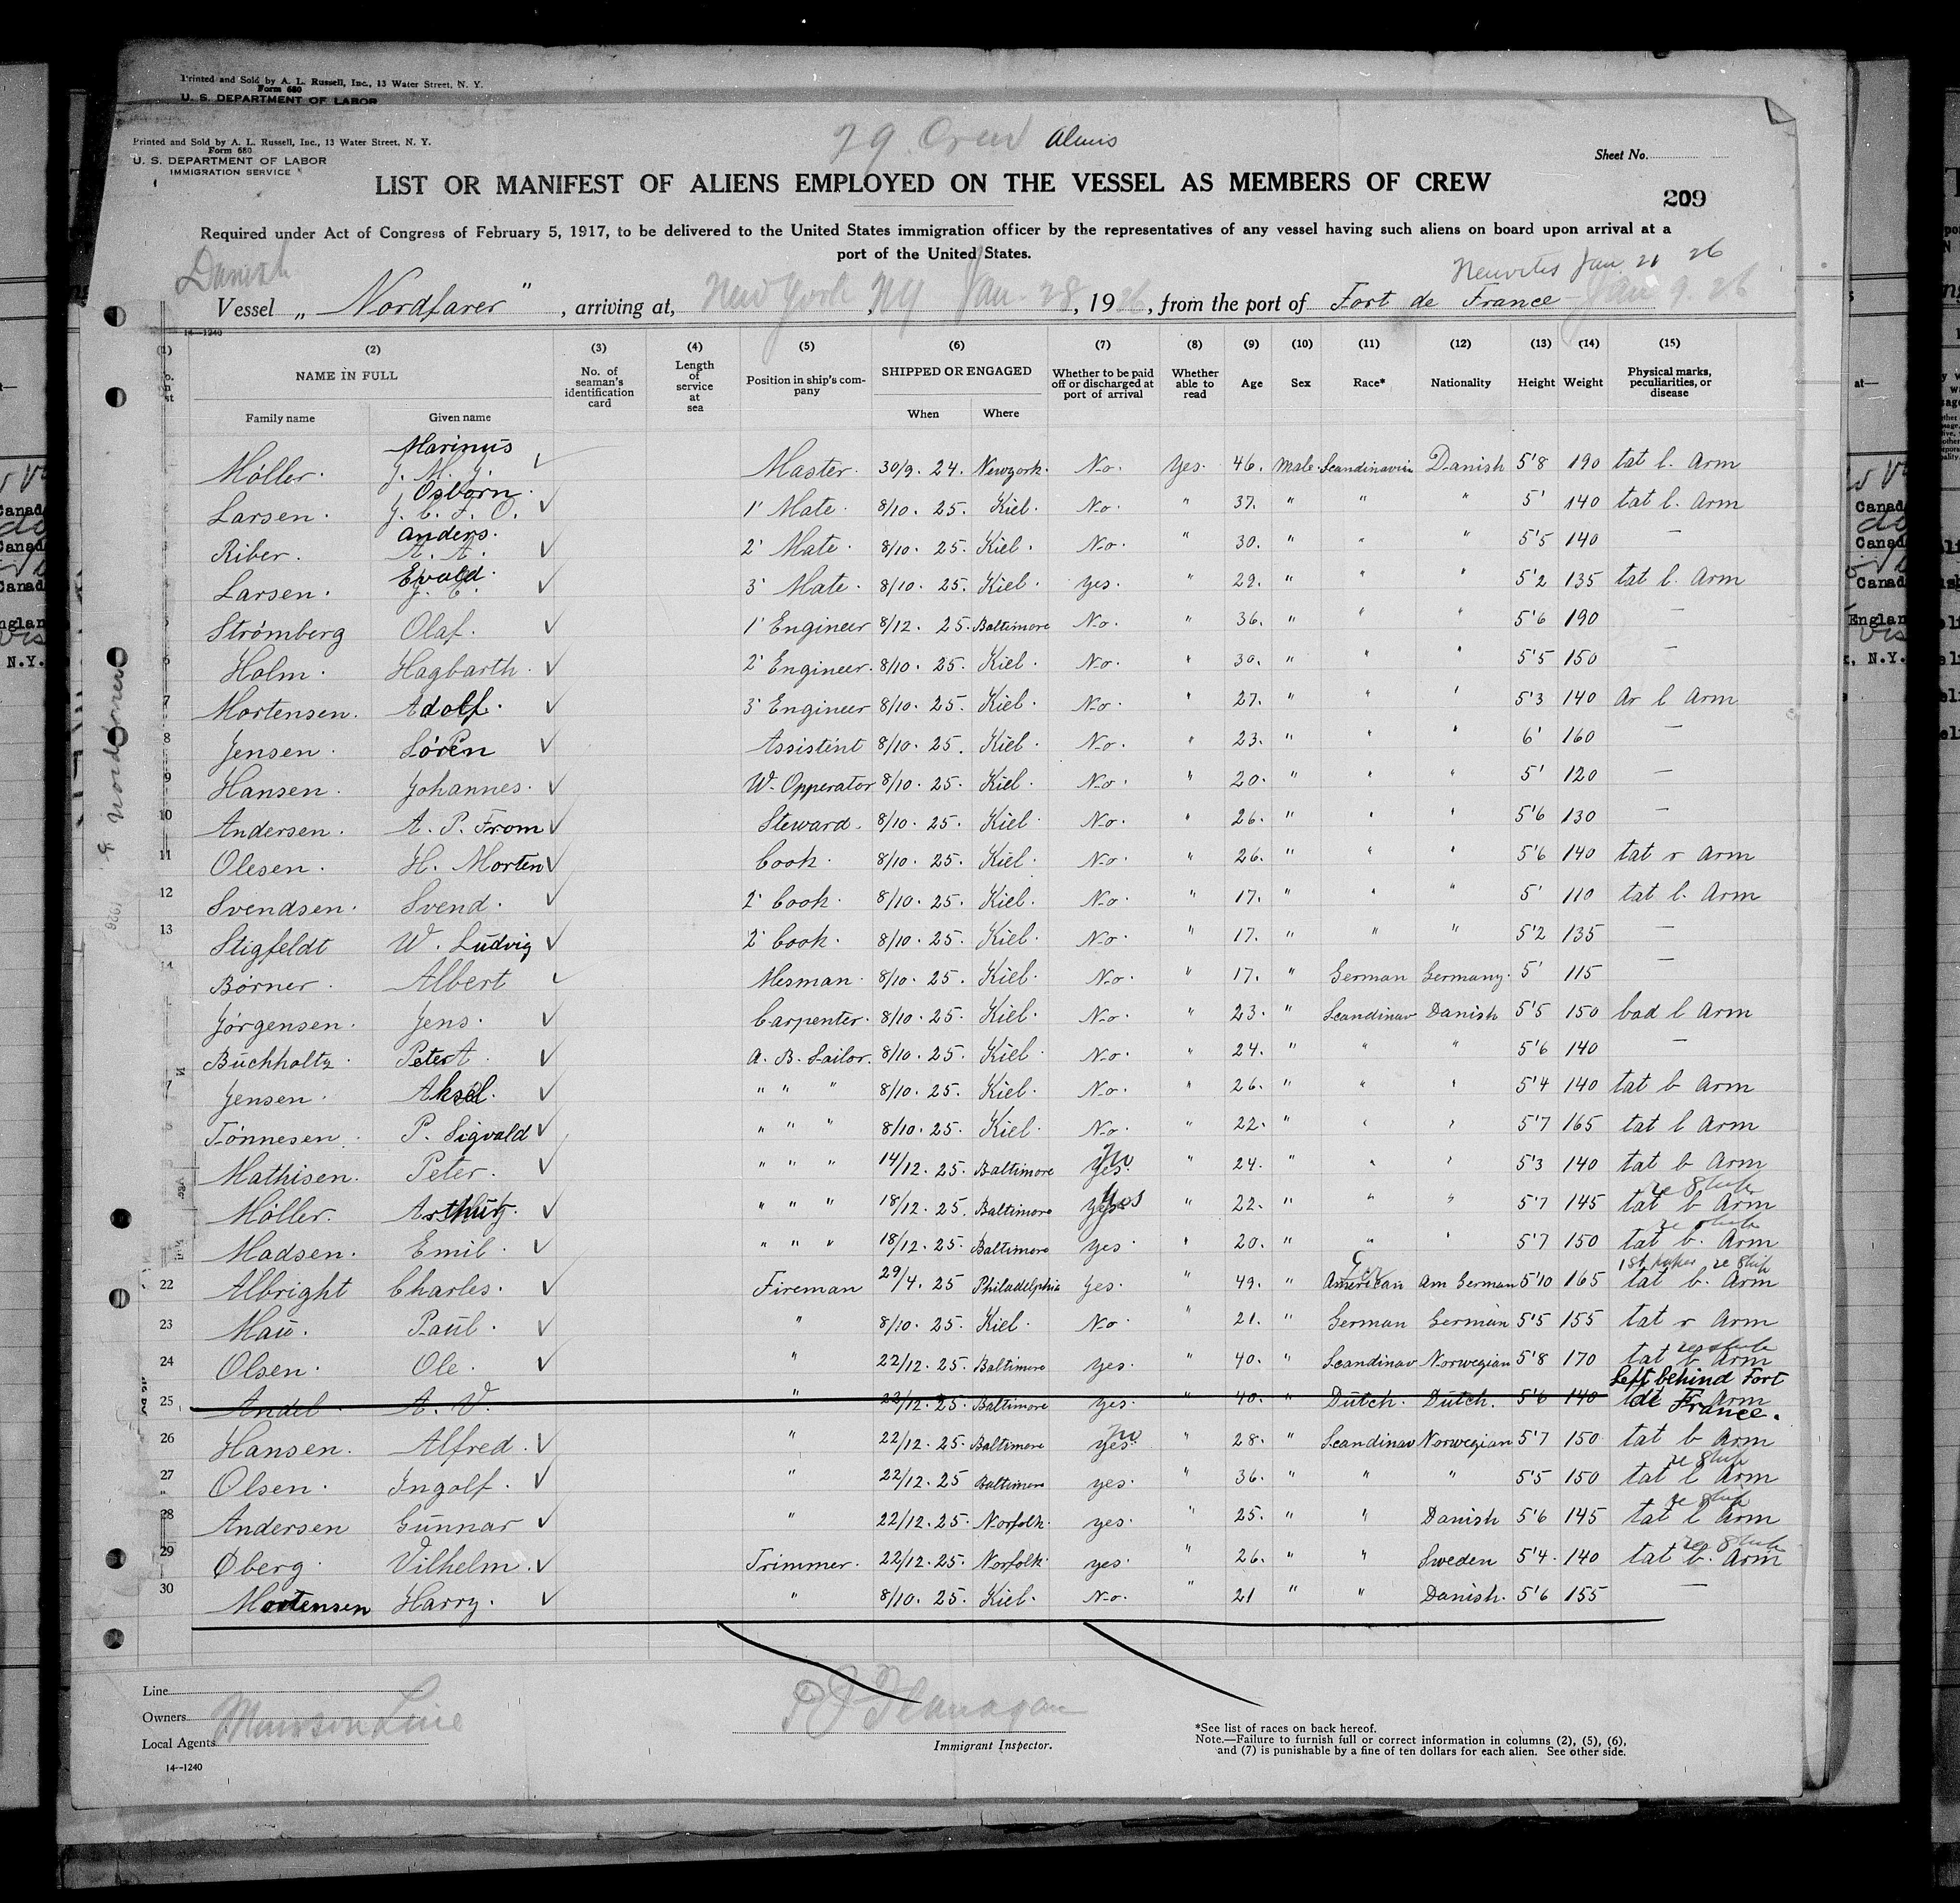 Printed and Sold by A. L. Russell, Inc., 13 Water Street, N. Y.
Form 680
U. S. DEPARTMENT OF LABOR
Printed and Sold by A. L. Russell, Inc., 13 Water Street, N. Y.
Form 680
U. S. DEPARTMENT OF LABOR
IMMIGRATION SERVICE
29 Crew Aliens
Sheet No.
LIST OR MANIFEST OF ALIENS EMPLOYED ON THE VESSEL AS MEMBERS OF CREW
209
Required under Act of Congress of February 5, 1917, to be delivered to the United States immigration officer by the representatives of any vessel having such aliens on board upon arrival at a
port of the United States.
Danish
Jan. 21 26
Vessel „ Nordfarer " , arriving at, New York, NY Jan. 28, 1926, from the port of Fort de France Jan 9. 26
14—1240
(1) (2) (3) (4) (5) (6) (7) (8) (9) (10) (11) (12) (13) (14) (15)
NAME IN FULL
Family name Given name
No. of seaman's identification card
Length of service at sea
Position in ship's company
SHIPPED OR ENGAGED
When Where
Whether to be paid off or discharged at port of arrival
Whether able to read
Age Sex Race* Nationality Height Weight
Physical marks, peculiarities, or disease
Marinus
Möller. J. M. J. ✓ Master. 30/9. 24. Newyork. No. Yes. 46. Male. Scandinavin Danish 5'8 190 tat l. Arm
Osborn.
Larsen. J. C. F. O. ✓ 1' Mate. 8/10. 25. Kiel. No. " 37. " " " 5' 140 tat l. Arm
Anders.
Riber. A. A. ✓ 2' Mate. 8/10. 25. Kiel. No. " 30. " " " 5'5 140 —
Evald.
Larsen. J. E. ✓ 3' Mate. 8/10. 25. Kiel. yes. " 29. " " " 5'2 135 tat l. Arm
5 Strömberg Olaf. ✓ 1' Engineer 8/12. 25. Baltimore No. " 36. " " " 5'6 190 —
6 Holm. Hagbarth. ✓ 2' Engineer. 8/10. 25. Kiel. No. " 30. " " " 5'5 150 —
7 Mortensen. Adolf. ✓ 3' Engineer 8/10. 25. Kiel. No. " 27. " " 5'3 140 Ar l Arm
8 Jensen. Sören ✓ Assistent 8/10. 25. Kiel. No. " 23. " " " 6' 160 —
9 Hansen. Johannes. ✓ W. Opperator 8/10. 25. Kiel. No. " 20. " " " 5' 120 —
10 Andersen. A. P. From ✓ Steward. 8/10. 25. Kiel. No. " 26. " " " 5'6 130 —
11 Olesen. H. Morten ✓ Cook. 8/10. 25. Kiel. No. " 26. " " " 5'6 140 tat r Arm
12 Svendsen. Svend. ✓ 2' Cook. 8/10. 25. Kiel. No. " 17. " " 5' 110 tat l. Arm
13 Stigfeldt W. Ludvig ✓ 2' Cook. 8/10. 25. Kiel. No. " 17. " " " 5'2 135 —
14 Börner. Albert ✓ Mesman. 8/10. 25. Kiel. No. " 17. " German Germany. 5' 115 —
Jörgensen. Jens. ✓ Carpenter. 8/10. 25. Kiel. No. " 23. " Scandinav Danish 5'5 150 bad l Arm
Buchholtz. Peter A. ✓ A. B. Sailor. 8/10. 25. Kiel. No. " 24. " " " 5'6 140 —
7 Jensen. Aksel. ✓ " " " 8/10. 25. Kiel. No. " 26. " " " 5'4 140 tat b Arm
Tönnesen. P. Sigvald ✓ " " " 8/10. 25. Kiel. No. " 22. " " " 5'7 165 tat l Arm
Mathisen. Peter. ✓ " " " 14/12. 25. Baltimore yes. No " 24. " " " 5'3 140 tat b Arm
re Ship
Möller. Arthur. ✓ " " " 18/12. 25. Baltimore yes Yes " 22. " " " 5'7 145 tat b Arm
re Ship
Madsen. Emil. ✓ " " " 18/12. 25. Baltimore yes. " 20. " " " 5'7 150 tat b. Arm
Ger 1st paper re Ship
22 Albright Charles. ✓ Fireman 29/4. 25 Philadelphia yes. " 49. " American Am German 5'10 165 tat b. Arm
23 Mau. Paul. ✓ " 8/10. 25. Kiel. No. " 21. " German German 5'5 155 tat r Arm
re Ship
24 Olsen. Ole. ✓ " 22/12. 25. Baltimore yes. " 40. " Scandinav Norwegian 5'8 170 tat b Arm
Left behind Fort
25 Andel. A. V. " 22/12. 25. Baltimore yes. " 40. " Dutch. Dutch. 5'6 140 Arm
de France.
26 Hansen. Alfred. ✓ " 22/12. 25. Baltimore yes. No " 28. " Scandinav Norwegian 5'7 150 tat b Arm
re Ship
27 Olsen. Ingolf. ✓ " 22/12. 25 Baltimore yes. " 36. " " " 5'5 150 tat l Arm
re Ship
28 Andersen Gunnar ✓ " 22/12. 25. Norfolk. yes. " 25. " " Danish 5'6 145 tat l Arm
re Ship
29 Øberg. Vilhelm. ✓ Trimmer. 22/12. 25. Norfolk yes. " 26. " " Sweden 5'4. 140 tat b. Arm
30 Mortensen Harry. ✓ " 8/10. 25. Kiel. No. " 21 " " Danish. 5'6 155 —
Line
Owners Munson Line
Local Agents
14--1240
P J Flanagan
Immigrant Inspector.
*See list of races on back hereof.
Note.—Failure to furnish full or correct information in columns (2), (5), (6),
and (7) is punishable by a fine of ten dollars for each alien. See other side.